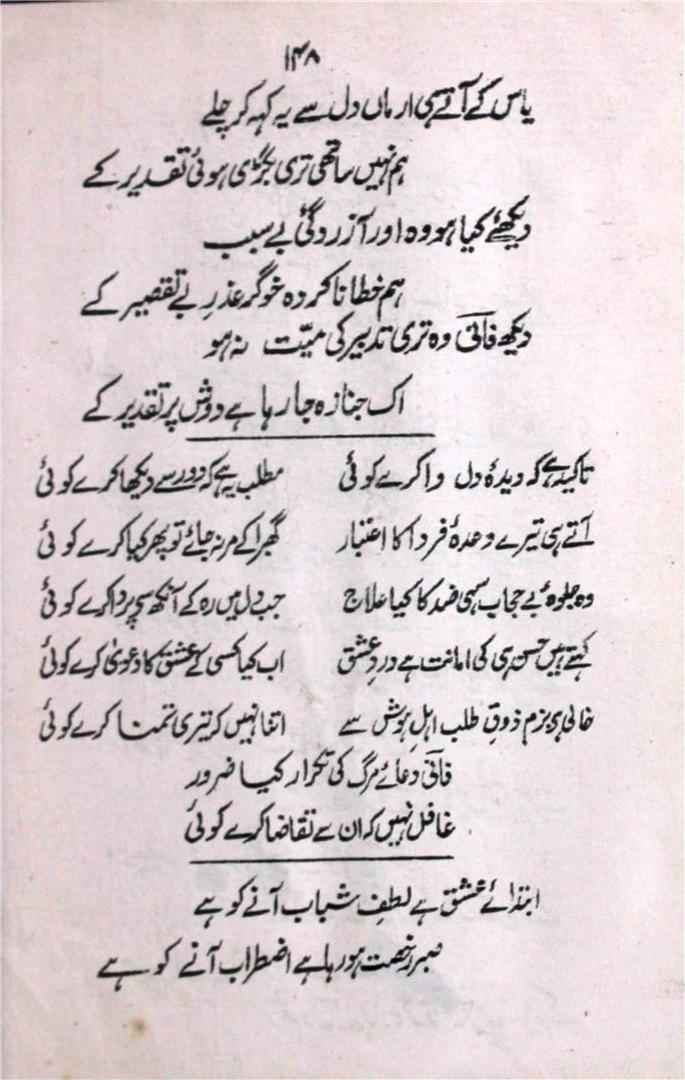 ۱۴۸
یاس کے آتے ہی ارماں دل سے یہ کہہ کر چلے
ہم نہیں ساتھی تری بگڑی ہوئی تقدیر کے
دیکھئے کیا ہو وہ اور آزردگیٔ بے سبب
ہم خطا ناکردہ خوگر عذرِ بے تقصیر کے
دیکھ فانیؔ وہ تری تدبیر کی میّت نہ ہو
اک جنازہ جا رہا ہے دوش پر تقدیر کے
تاکید ہے کہ دیدۂ دل وا کرے کوئی مطلب یہ ہے کہ دور سے دیکھا کرے کوئی
آتے ہی تیرے وعدۂ فردا کا اعتبار گھبرا کے مر نہ جائے تو پھر کیا کرے کوئی
وہ جلوۂ بے حجاب سہی ضد کا کیا علاج جب دل میں رہ کے آنکھ سے پردا کرے کوئی
کہتے ہیں حسن ہی کی امانت ہے دردِ عشق اب کیا کسی کے عشق کا دعویٰ کرے کوئی
خالی ہے بزمِ ذوقِ طلب اہلِ ہوش سے اتنا نہیں کہ تیری تمنا کرے کوئی
فانیؔ دعائے مرگ کی تکرار کیا ضرور
غافل نہیں کہ ان سے تقاضا کرے کوئی
ابتدائے عشق ہے لطفِ شباب آنے کو ہے
صبر رخصت ہو رہا ہے اضطراب آنے کو ہے